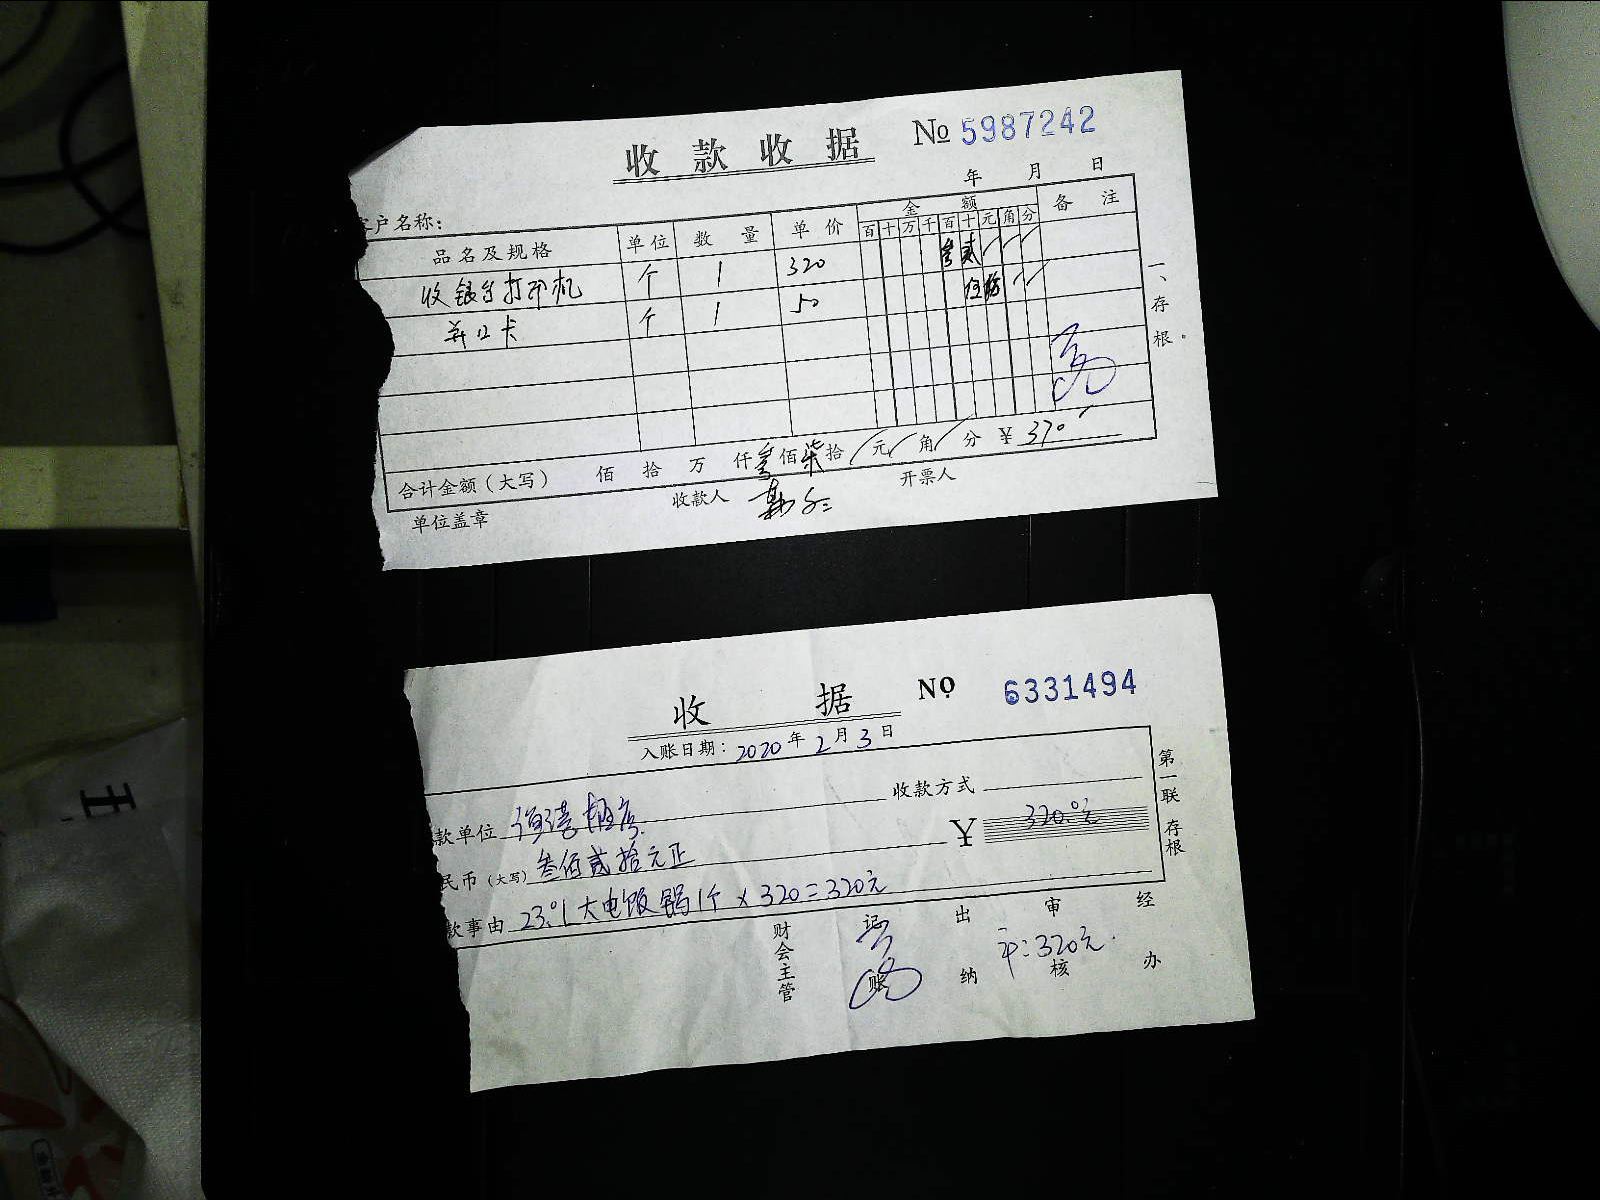 收款收据 No 5987242
年 月 日
客户名称:
品名及规格 单位 数量 单价 金额 备注
百 十 万 千 百 十 元 角 分
收银台打印机 个 1 320 叁 贰 / / /
并口卡 个 1 50 伍 拾 / /
一、存根
合计金额(大写) 佰 拾 万 仟 叁 佰 柒 拾 / 元 / 角 / 分 ¥ 370
单位盖章 收款人 开票人
收据 No 6331494
入账日期: 2020 年 2 月 3 日
款单位 收款方式
民币(大写) 叁佰贰拾元正 ¥ 320.00元
款事由 23.01大电饭锅1个 x 320=320元
财会主管 记账 出纳 审核 经办
320元
第一联 存根
王